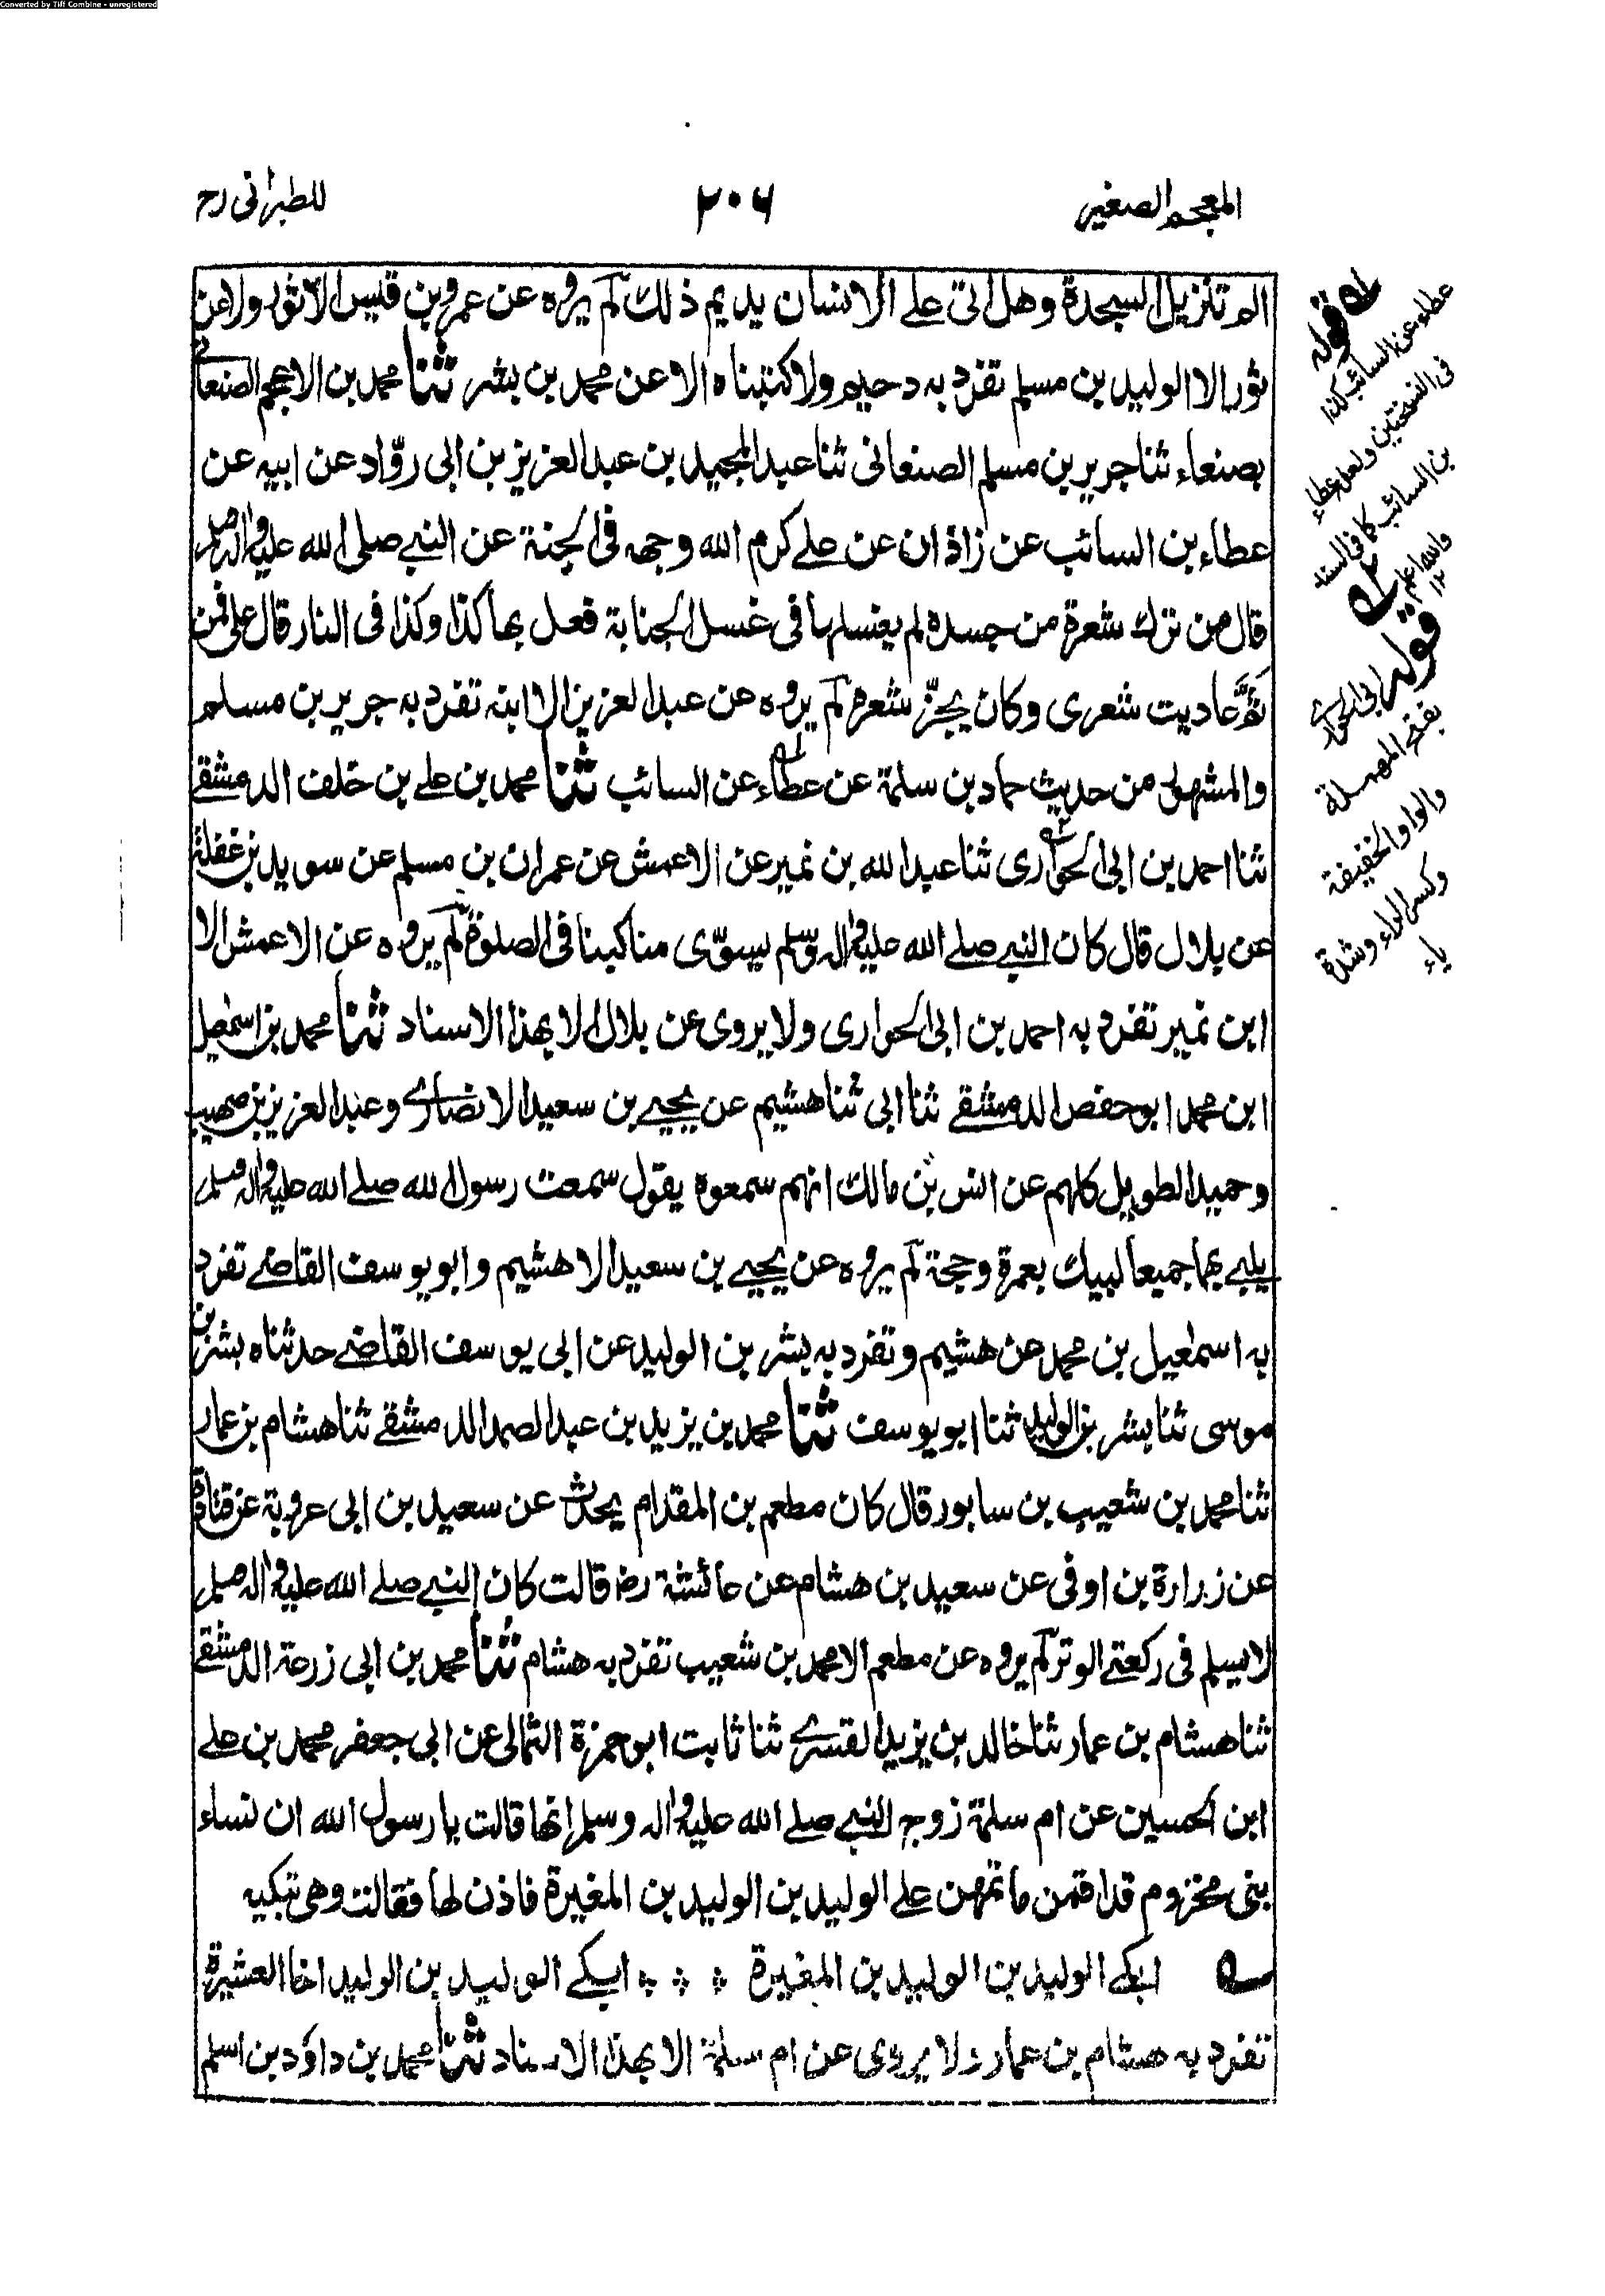 Converted by Tiff Combine - unregistered
المعجم الصغير
٢٠٦
للطبرانى رح
الم تنزيل السجدة وهل اتى على الانسان يديم ذلك لم يروه عن عمرو بن قيس الا ثور ولا عن
ثور الا الوليد بن مسلم تفرد به دحيم ولا كتبناه الا عن محمد بن بشر ثنا محمد بن الاعجم الصنعانى
بصنعاء ثنا جرير بن مسلم الصنعانى ثنا عبد المجيد بن عبد العزيز بن ابى روّاد عن ابيه عن
عطاء بن السائب عن زاذان عن على كرم الله وجهه فى الجنة عن النبى صلى الله عليه واله وسلم
قال من ترك شعرة من جسده لم يغسلها فى غسل الجنابة فعل بها كذا وكذا فى النار قال على فمن
ثَمَّ عاديت شعرى وكان يجزّ شعره لم يروه عن عبد العزيز الا ابنه تفرد به جرير بن مسلم
والمشهور من حديث حماد بن سلمة عن عطاء عن السائب ثنا محمد بن على بن خلف الدمشقى
ثنا احمد بن ابى الحوارى ثنا عبد الله بن نمير عن الاعمش عن عمران بن مسلم عن سويد بن غفلة
عن بلال قال كان النبى صلى الله عليه واله وسلم يسوّى مناكبنا فى الصلوة لم يروه عن الاعمش الا
ابن نمير تفرد به احمد بن ابى الحوارى ولا يروى عن بلال الا بهذا الاسناد ثنا محمد بن اسمعيل
ابن محمد ابو حفص الدمشقى ثنا ابى ثنا هشيم عن يحيى بن سعيد الانصارى وعبد العزيز بن صهيب
وحميد الطويل كلهم عن انس بن مالك انهم سمعوه يقول سمعت رسول الله صلى الله عليه واله وسلم
يلبى بهما جميعا لبيك بعمرة وحجة لم يروه عن يحيى بن سعيد الا هشيم وابو يوسف القاضى تفرد
به اسمعيل بن محمد عن هشيم وتفرد به بشر بن الوليد عن ابى يوسف القاضى حدثناه بشر بن
موسى ثنا بشر بن الوليد ثنا ابو يوسف ثنا محمد بن يزيد بن عبد الصمد الدمشقى ثنا هشام بن عمار
ثنا محمد بن شعيب بن سابور قال كان مطعم بن المقدام يحدث عن سعيد بن ابى عروبة عن قتادة
عن زرارة بن اوفى عن سعيد بن هشام عن عائشة رض قالت كان النبى صلى الله عليه واله وسلم
لا يسلم فى ركعتى الوتر لم يروه عن مطعم الا محمد بن شعيب تفرد به هشام ثنا محمد بن ابى زرعة الدمشقى
ثنا هشام بن عمار ثنا خالد بن يزيد القسرى ثنا ثابت ابو حمزة الثمالى عن ابى جعفر محمد بن على
ابن الحسين عن ام سلمة زوج النبى صلى الله عليه واله وسلم انها قالت يا رسول الله ان نساء
بنى مخزوم قد اقمن ماتمهن على الوليد بن الوليد بن المغيرة فاذن لها فقالت وهى تبكيه
ابكى الوليد بن الوليد بن المغيرة ابكى الوليد بن الوليد اخا العشيرة
تفرد به هشام بن عمار ولا يروى عن ام سلمة الا بهذا الاسناد ثنا محمد بن داؤد بن اسلم
له قوله
عطاء عن السائب كذا
فى النسختين ولعله عطاء
بن السائب كما فى السند
والله اعلم ١٢
٢ه قوله ابى الحوارى
بفتح المهملة
والواو الخفيفة
وكسر الراء وشدة
ياء